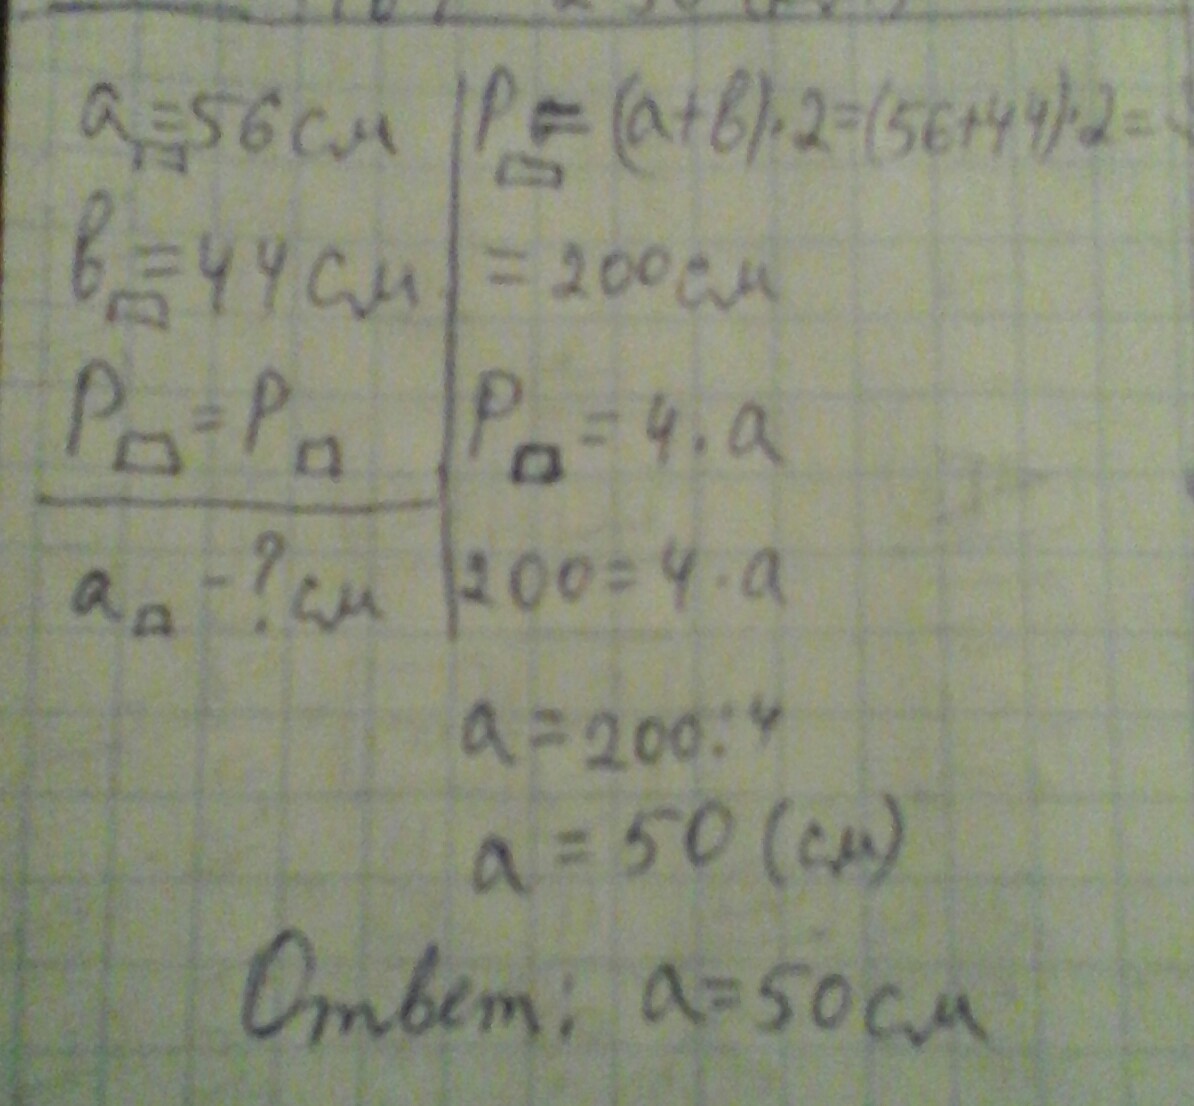 a▭ = 56 см
в▭ = 44 см
P▭ = P□
a□ - ? см
P▭ = (a+в)·2=(56+44)·2=
= 200 см
P□ = 4 · a
200 = 4 · a
a = 200 : 4
a = 50 (см)
Ответ: a = 50 см